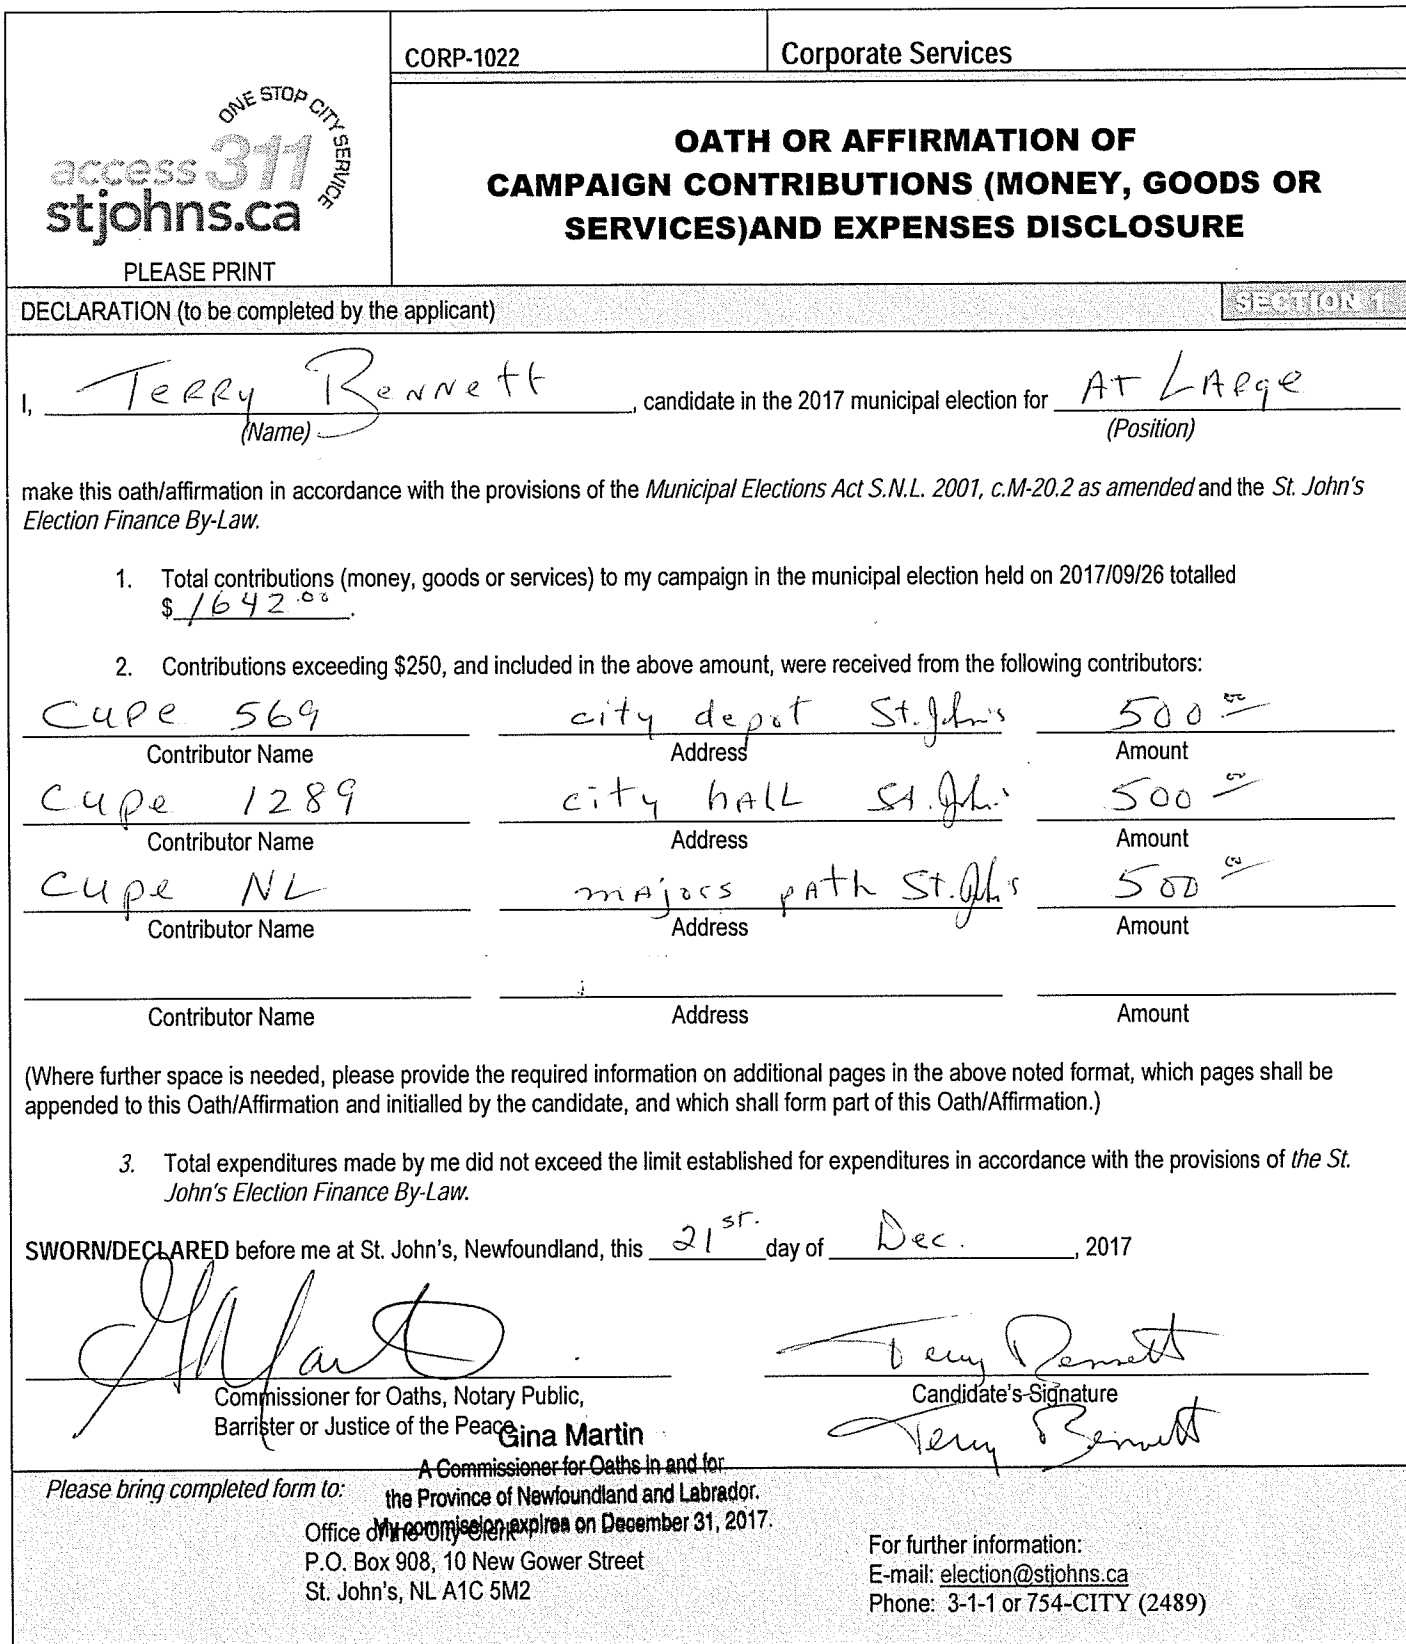 CORP-1022
Corporate Services
ONE STOP CITY SERVICE
access 311
stjohns.ca
PLEASE PRINT
OATH OR AFFIRMATION OF
CAMPAIGN CONTRIBUTIONS (MONEY, GOODS OR
SERVICES)AND EXPENSES DISCLOSURE
DECLARATION (to be completed by the applicant)
SECTION 1
I, Terry Bennett, candidate in the 2017 municipal election for At Large
(Name)
(Position)
make this oath/affirmation in accordance with the provisions of the Municipal Elections Act S.N.L. 2001, c.M-20.2 as amended and the St. John's
Election Finance By-Law.
1. Total contributions (money, goods or services) to my campaign in the municipal election held on 2017/09/26 totalled
$ 1642.00.
2. Contributions exceeding $250, and included in the above amount, were received from the following contributors:
Cupe 569 city depot St. John's 500.00
Contributor Name Address Amount
Cupe 1289 city hall St. John's 500.00
Contributor Name Address Amount
Cupe NL majors path St. John's 500.00
Contributor Name Address Amount
Contributor Name Address Amount
(Where further space is needed, please provide the required information on additional pages in the above noted format, which pages shall be
appended to this Oath/Affirmation and initialled by the candidate, and which shall form part of this Oath/Affirmation.)
3. Total expenditures made by me did not exceed the limit established for expenditures in accordance with the provisions of the St.
John's Election Finance By-Law.
SWORN/DECLARED before me at St. John's, Newfoundland, this 21st. day of Dec. , 2017
Terry Bennett
Commissioner for Oaths, Notary Public,
Barrister or Justice of the Peace
Candidate's Signature
Terry Bennett
Gina Martin
A Commissioner for Oaths in and for
the Province of Newfoundland and Labrador.
My commission expires on December 31, 2017.
Please bring completed form to:
Office of the City Clerk
P.O. Box 908, 10 New Gower Street
St. John's, NL A1C 5M2
For further information:
E-mail: election@stjohns.ca
Phone: 3-1-1 or 754-CITY (2489)